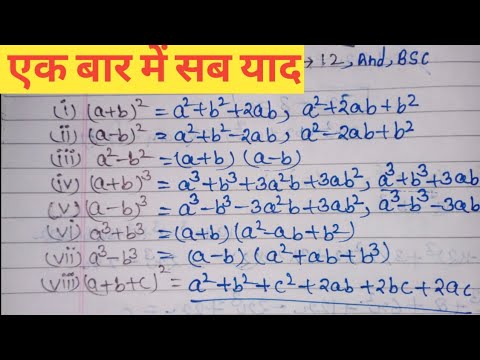 एक बार में सब याद
→ 12, And, BSC
(i) (a+b)² = a²+b²+2ab, a²+2ab+b²
(ii) (a-b)² = a²+b²-2ab, a²-2ab+b²
(iii) a²-b² = (a+b) (a-b)
(iv) (a+b)³ = a³+b³+3a²b+3ab², a³+b³+3ab
(v) (a-b)³ = a³-b³-3a²b+3ab², a³-b³-3ab
(vi) a³+b³ = (a+b)(a²-ab+b²)
(vii) a³-b³ = (a-b) (a²+ab+b³)
(viii) (a+b+c)² = a²+b²+c²+2ab+2bc+2ac